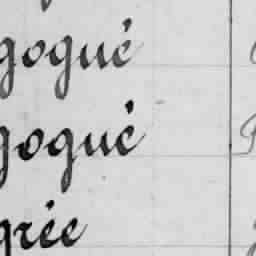 gogué
gogué
grée